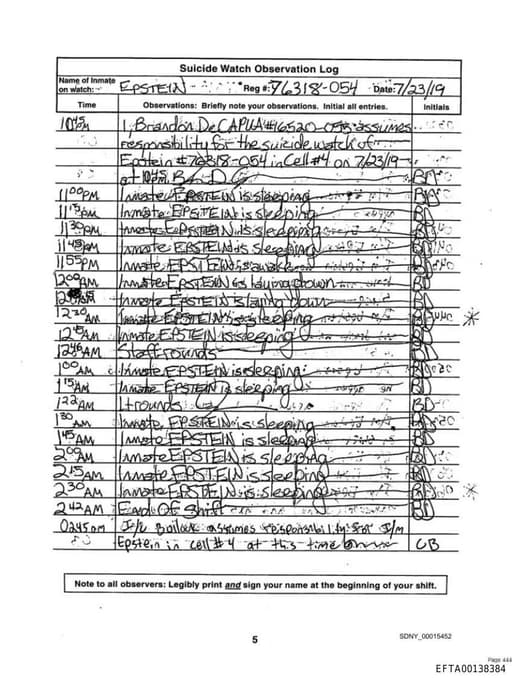 Suicide Watch Observation Log
Name of Inmate on watch: EPSTEIN Reg #: 76318-054 Date: 7/23/19
Time Observations: Briefly note your observations. Initial all entries. Initials
1045pm I, Brandon DeCAPUA #16520- assumes
responsibility for the suicide watch of
Epstein #76318-054 in Cell #4 on 7/23/19
at 1045pm. BD
1100PM Inmate EPSTEIN is sleeping BD
1115PM Inmate EPSTEIN is sleeping BD
1130PM Inmate EPSTEIN is sleeping BD
1145PM Inmate EPSTEIN is sleeping BD
1155PM Inmate EPSTEIN is awake BD
1200AM Inmate EPSTEIN is laying down BD
1215AM Inmate EPSTEIN is laying down BD
1230AM Inmate EPSTEIN is sleeping BD *
1245AM Inmate EPSTEIN is sleeping BD
1246AM Staff rounds BD
100AM Inmate EPSTEIN is sleeping BD
115AM Inmate EPSTEIN is sleeping BD
122AM Lt rounds BD
130AM Inmate EPSTEIN is sleeping BD
145AM Inmate EPSTEIN is sleeping BD
200AM Inmate EPSTEIN is sleeping BD
215AM Inmate EPSTEIN is sleeping BD
230AM Inmate EPSTEIN is sleeping BD *
242AM End Of Shift BD
0245am I/m assumes responsibility for I/m
Epstein in cell #4 at this time CB
Note to all observers: Legibly print and sign your name at the beginning of your shift.
5
SDNY_00015452
Page 444
EFTA00138384